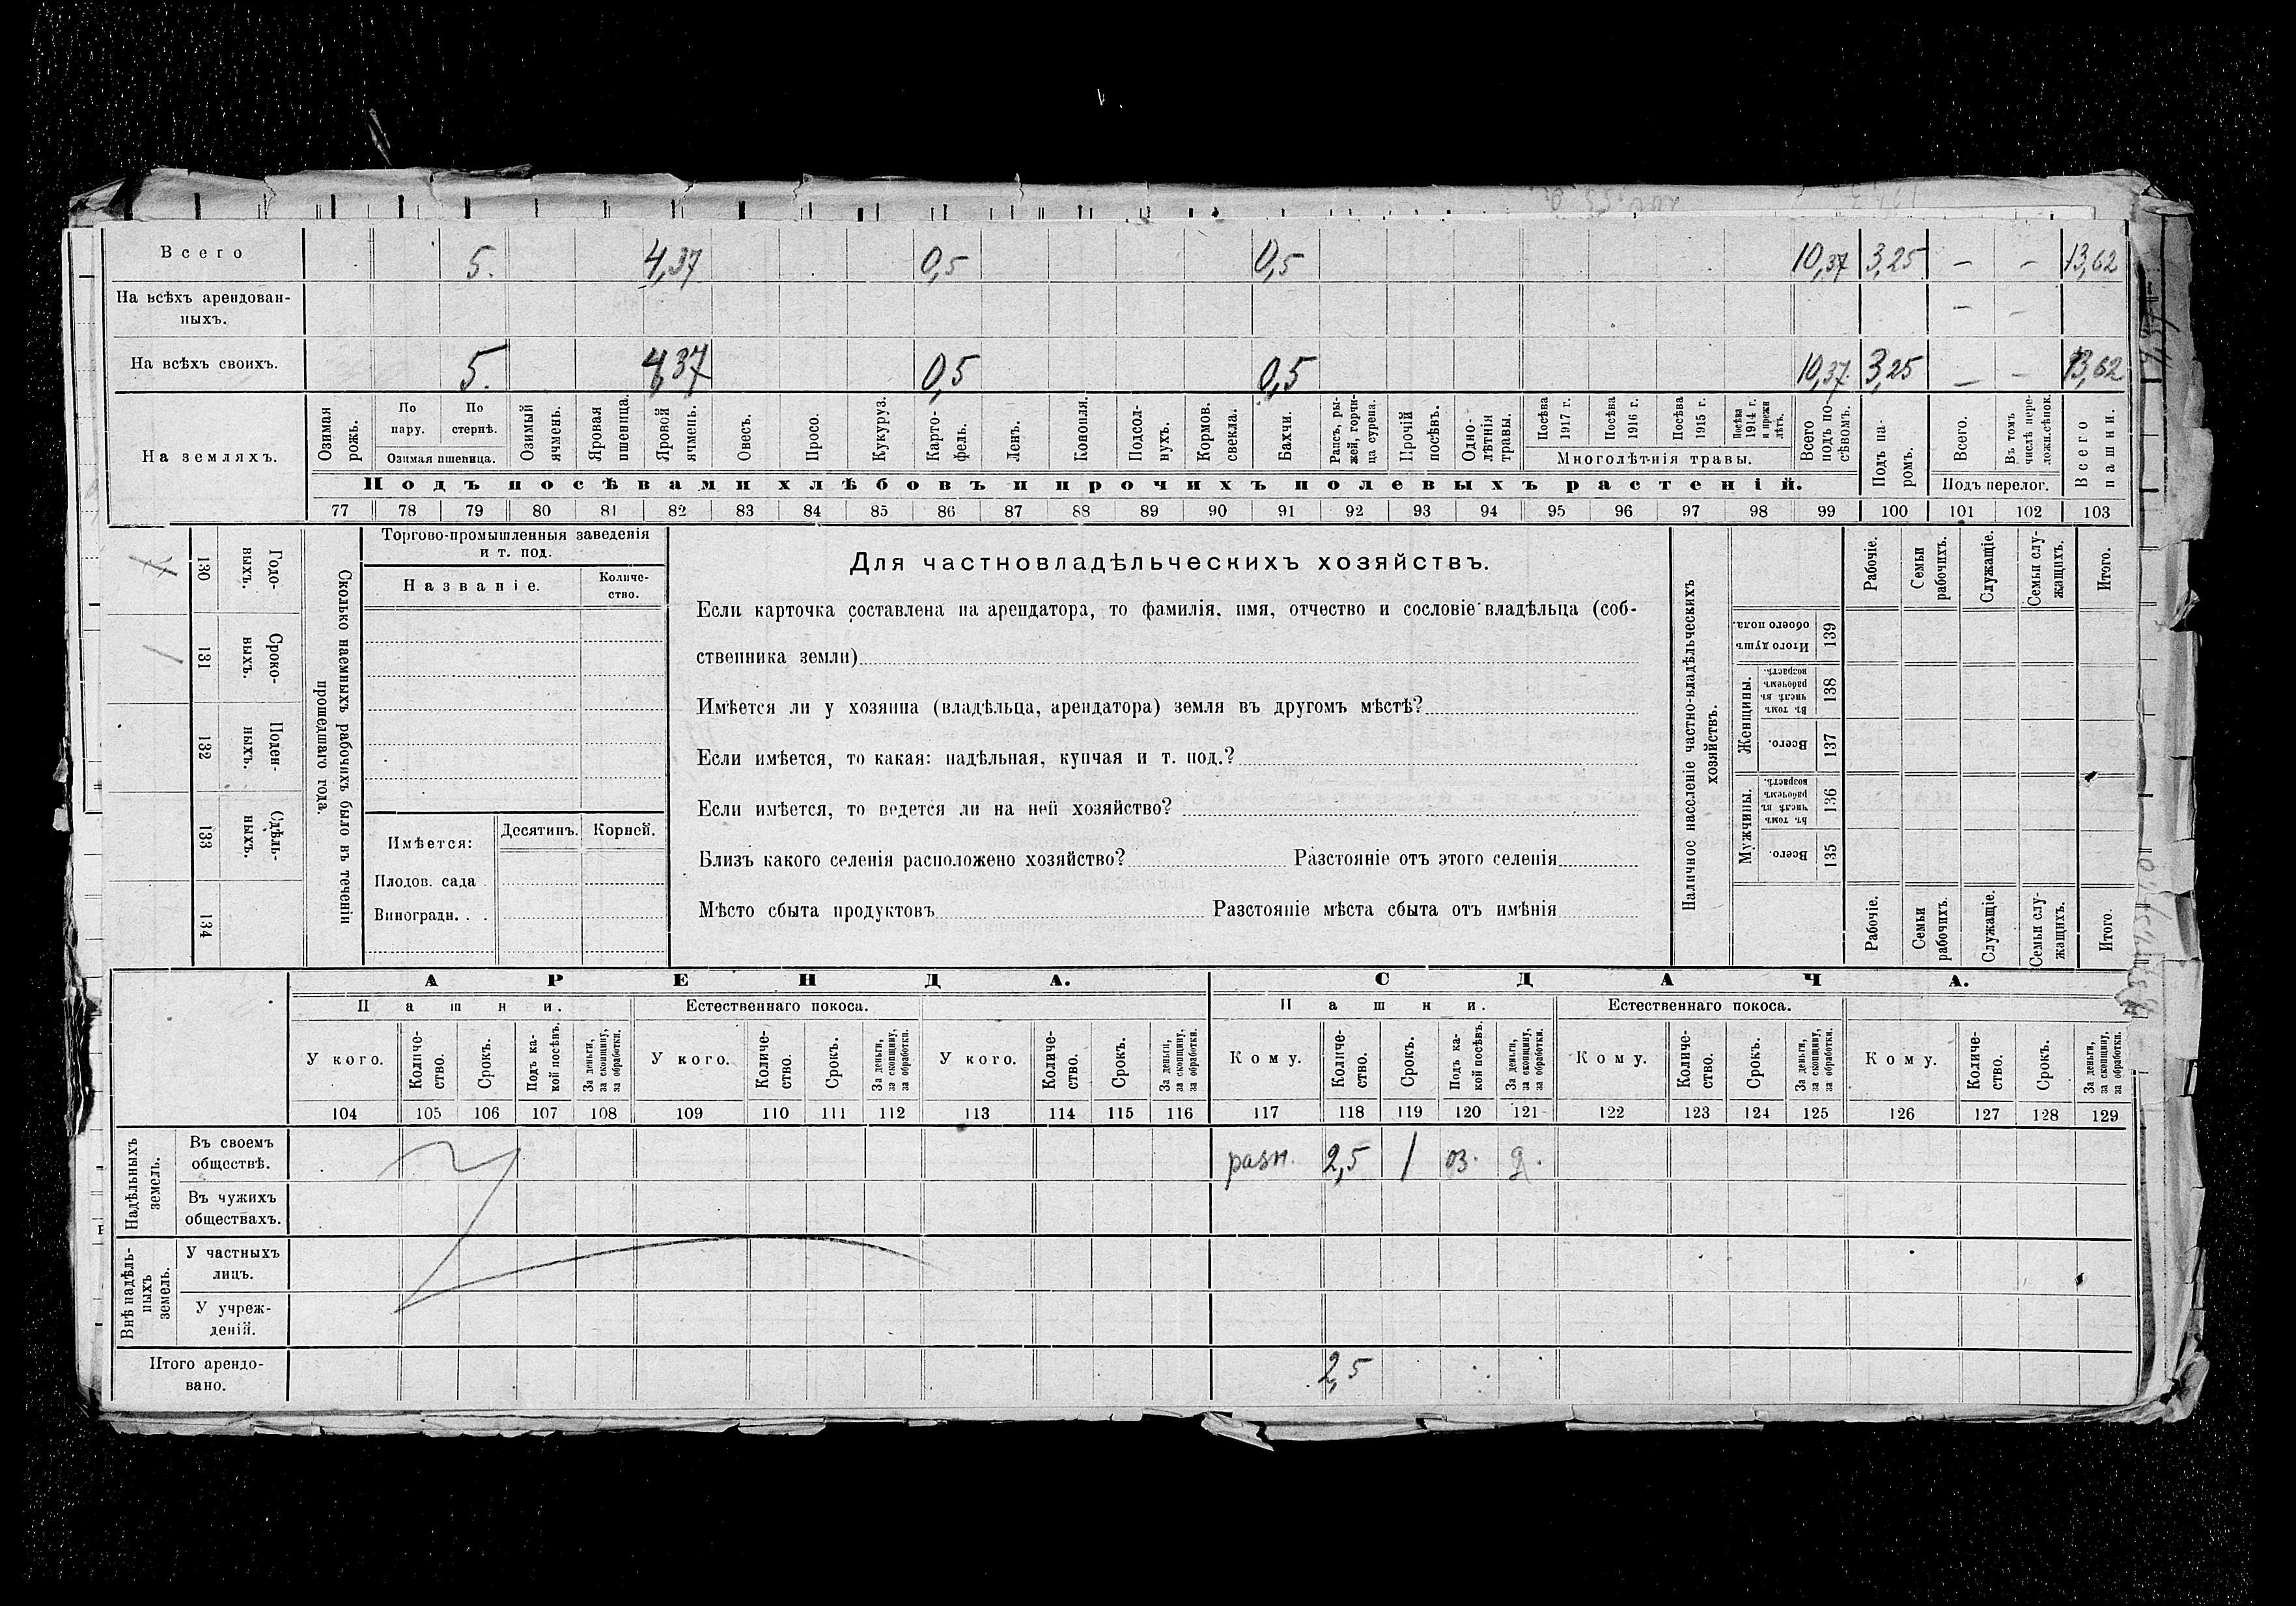 Всего 5. 4,37 0,5 0,5 10,37 3,25 — — 13,62
На всѣхъ арендован-
ныхъ. — —
На всѣхъ своихъ. 5. 4,37 0,5 0,5 10,37 3,25 — — 13,62
На земляхъ.
Озимая рожь.
По пару.
По стернѣ.
Озимая пшеница.
Озимый ячмень.
Яровая пшеница.
Яровой ячмень.
Овесъ.
Просо.
Кукуруз.
Карто-
фель.
Ленъ.
Конопля.
Подсол-
нухъ.
Кормов. свекла.
Бахчи.
Рапсъ, ры-
жей, горчи-
ца сурепа.
Прочій посѣвъ.
Одно-
лѣтнія травы.
Посѣва 1917 г.
Посѣва 1916 г.
Посѣва 1915 г.
Посѣва 1914 г. и прежн лѣтъ.
Многолѣтнія травы.
Всего подъ по-
сѣвомъ.
Подъ па-
ромъ.
Всего.
Въ томъ числѣ пере-
ложн.сѣнок.
Подъ перелог.
Всего пашни.
Подъ посѣвами хлѣбовъ и прочихъ полевыхъ растеній.
77 78 79 80 81 82 83 84 85 86 87 88 89 90 91 92 93 94 95 96 97 98 99 100 101 102 103
130 Годо-
выхъ.
131 Сроко-
выхъ.
132 Поден-
ныхъ.
133 Сдѣль-
ныхъ.
134
Сколько наемныхъ рабочихъ было въ теченіи
прошедшаго года.
Торгово-промышленныя заведенія
и т. под.
Названіе.
Количе-
ство.
Имѣется:
Десятинъ. Корней.
Плодов. сада .
Виноградн. . .
Для частновладѣльческихъ хозяйствъ.
Если карточка составлена на арендатора, то фамилія, имя, отчество и сословіе владѣльца (соб-
ственника земли)
Имѣется ли у хозяина (владѣльца, арендатора) земля въ другомъ мѣстѣ?
Если имѣется, то какая: надѣльная, купчая и т. под.?
Если имѣется, то ведется ли на ней хозяйство?
Близъ какого селенія расположено хозяйство? Разстояніе отъ этого селенія
Мѣсто сбыта продуктовъ Разстояніе мѣста сбыта отъ имѣнія
Наличное населеніе частно-владѣльческихъ
хозяйствъ.
Итого душъ обоего пола. 139
Женщины.
Въ томъ числѣ въ рабочемъ возрастѣ. 138
Всего. 137
Мужчины.
Въ томъ числѣ въ рабочемъ возрастѣ. 136
Всего. 135
Рабочіе.
Семьи рабочихъ.
Служащіе.
Семьи слу-
жащихъ.
Итого.
Рабочіе.
Семьи рабочихъ.
Служащіе.
Семьи слу-
жащихъ.
Итого.
АРЕНДА. СДАЧА.
Пашни. Естественнаго покоса. Пашни. Естественнаго покоса.
У кого.
Количе-
ство.
Срокъ.
Подъ ка-
кой посѣвъ.
За деньги, за скопщину, за обработки.
У кого.
Количе-
ство.
Срокъ.
За деньги, за скопщину, за обработки.
У кого.
Количе-
ство.
Срокъ.
За деньги, за скопщину, за обработки.
Кому.
Количе-
ство.
Срокъ.
Подъ ка-
кой посѣвъ.
За деньги, за скопщину, за обработки.
Кому.
Количе-
ство.
Срокъ.
За деньги, за скопщину, за обработки.
Кому.
Количе-
ство.
Срокъ.
За деньги, за скопщину, за обработки.
104 105 106 107 108 109 110 111 112 113 114 115 116 117 118 119 120 121 122 123 124 125 126 127 128 129
Надѣльныхъ земель.
Въ своемъ
обществѣ. разн. 2,5 1 оз. д.
Въ чужихъ
обществахъ.
Внѣ надѣль-
ныхъ земель.
У частныхъ
лицъ.
У учреж-
деній.
Итого арендо-
вано. 2,5